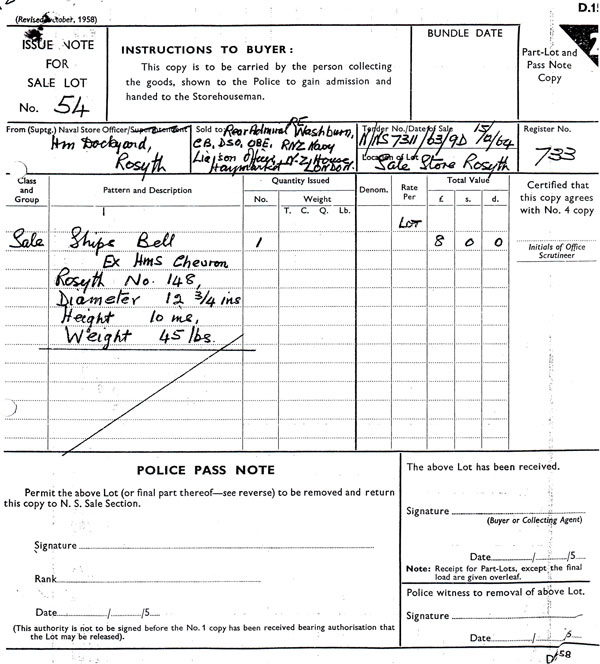 (Revised October, 1958)
D.15
ISSUE NOTE
FOR
SALE LOT
No. 54
INSTRUCTIONS TO BUYER:
This copy is to be carried by the person collecting
the goods, shown to the Police to gain admission and
handed to the Storehouseman.
BUNDLE DATE
Part-Lot and
Pass Note
Copy
2
From (Suptg.) Naval Store Officer/Superintendent
Hm Dockyard,
Rosyth
Sold to Rear Admiral Washburn,
CB, DSO, OBE, RNZ Navy
Liaison Officer, N.Z. House,
Haymarket LONDON.
Tender No./Date of Sale
N/NS 7311/63/9D 15/10/64
Location of Lot
Sale Store Rosyth
Register No.
733
Class
and
Group
Pattern and Description
Quantity Issued
No.
Weight
T. C. Q. Lb.
Denom.
Rate
Per
Total Value
£ s. d.
Certified that
this copy agrees
with No. 4 copy
Initials of Office
Scrutineer
1
LOT
Sale Ships Bell 1 8 0 0
Ex Hms Chevron
Rosyth No. 148,
Diameter 12 3/4 ins
Height 10 ins,
Weight 45 lbs.
POLICE PASS NOTE
Permit the above Lot (or final part thereof—see reverse) to be removed and return
this copy to N. S. Sale Section.
Signature
Rank
Date / /5
(This authority is not to be signed before the No. 1 copy has been received bearing authorisation that
the Lot may be released).
The above Lot has been received.
Signature
(Buyer or Collecting Agent)
Date / /5
Note: Receipt for Part-Lots, except the final
load are given overleaf.
Police witness to removal of above Lot.
Signature
Date / /5